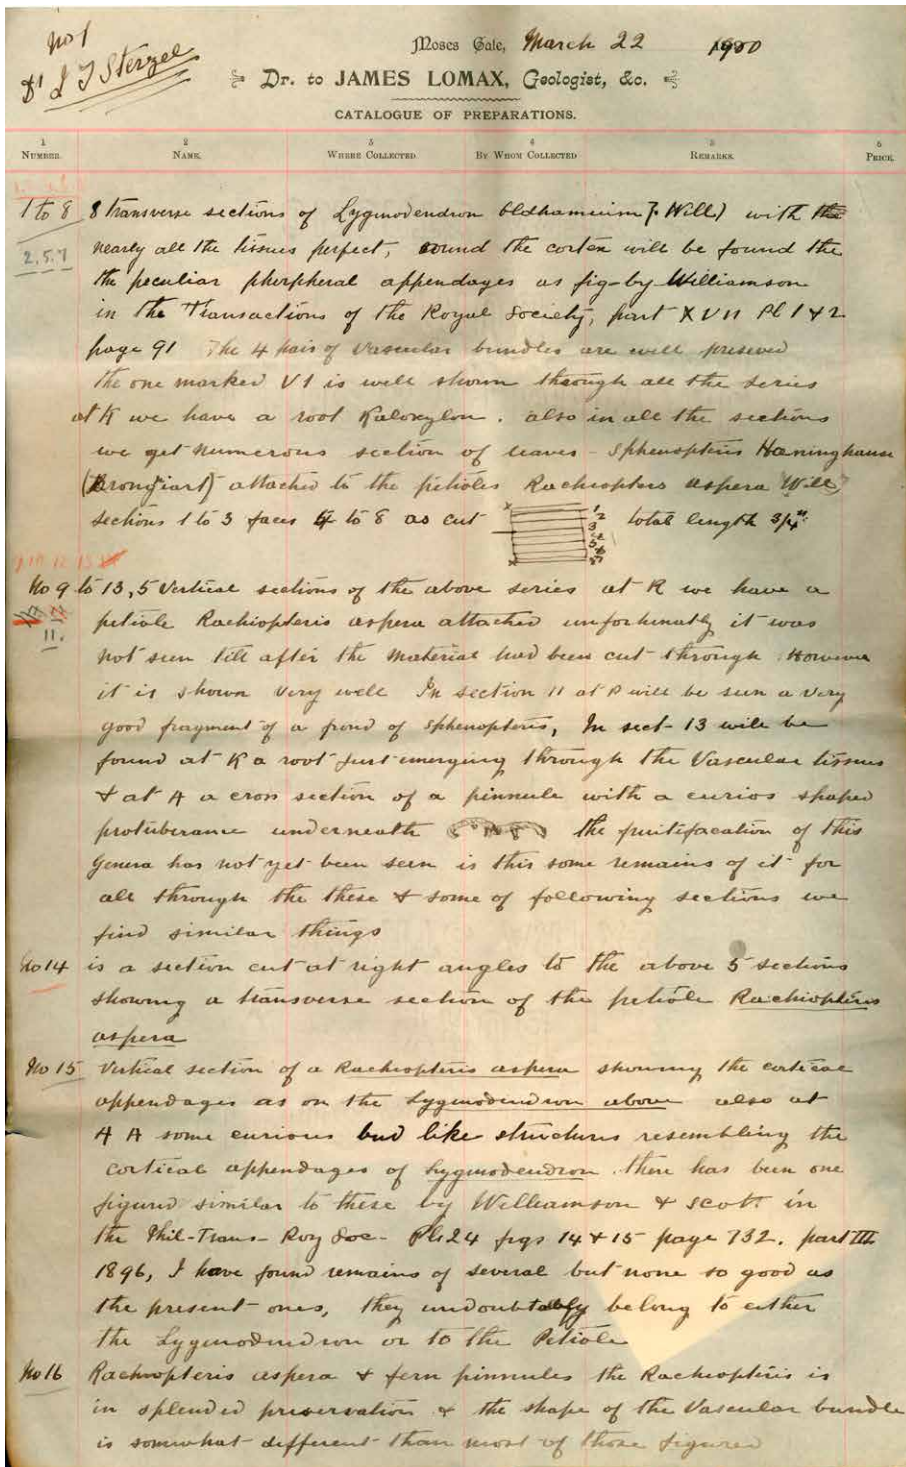 No 1
Dr J T Sterzel
Moses Gate, March 22 1900
Dr. to JAMES LOMAX, Geologist, &c.
CATALOGUE OF PREPARATIONS.
1 2 3 4 5 6
NUMBER. NAME. WHERE COLLECTED BY WHOM COLLECTED REMARKS. PRICE.
1 to 8 8 transverse sections of Lyginodendron Oldhamium (Will) with the
2.5.7 nearly all the tissues perfect, round the cortex will be found the
the peculiar pherpheral appendages as fig-by Williamson
in the Transactions of the Royal Society, part XVII Pl 1 & 2
page 91 The 4 pair of Vascular bundles are well preseved
the one marked V1 is well shown through all the series
at K we have a root Kaloxylon. also in all the sections
we get numerous section of leaves - Sphenopteris Haninghause
(Brongiart) attached to the petioles Rachiopteris aspera Will)
sections 1 to 3 faces 4 to 8 as cut total length 3/4"
No 9 to 13, 5 Vertical sections of the above series at R we have a
petiole Rachiopteris aspera attached unfortunatly it was
11. not seen till after the material had been cut through. However
it is shown very well In section 11 at P will be seen a very
good fragment of a frond of Sphenopteris, In sect- 13 will be
found at K a root just emerging through the Vascular tissues
& at A a cross section of a pinnule with a curios shaped
protuberance underneath the fruitifacation of this
Genera has not yet been seen is this some remains of it for
all through the these & some of following sections we
find similar things
No 14 is a section cut at right angles to the above 5 sections
showing a transverse section of the petiole Rachiopteris
aspera
No 15 Vertical section of a Rachiopteris aspera showing the cortical
appendages as on the Lyginodendron above also at
A A some curious bud like structures resembling the
cortical appendages of Lyginodendron. there has been one
figured similar to these by Williamson & Scott in
the Phil-Trans- Roy Soc- Pl 24 figs 14 & 15 page 732. part III
1896, I have found remains of several but none so good as
the present ones, they undoubtably belong to either
the Lyginodendron or to the Petiole
No 16 Rachiopteris aspera & fern pinnules the Rachiopteris is
in splended preservation & the shape of the Vascular bundle
is somewhat different than most of those figured